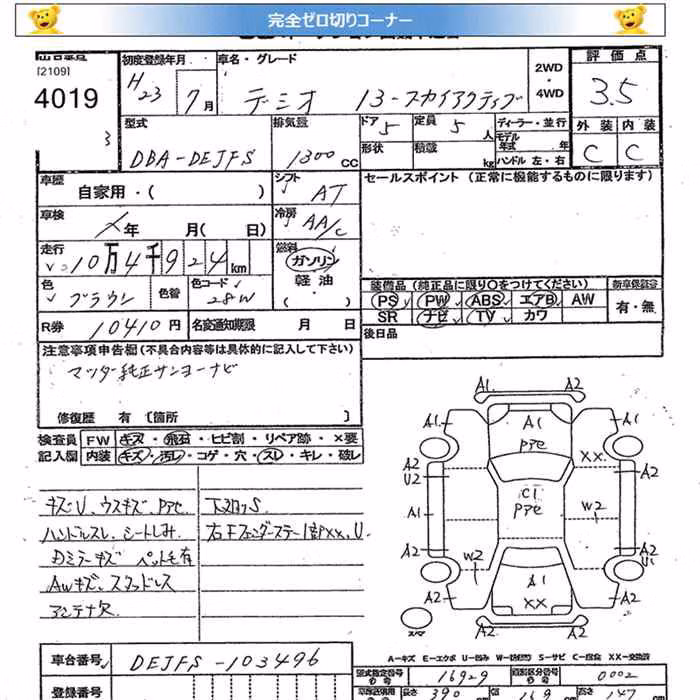 完全ゼロ切りコーナー
[2109]
4019
3
初度登録年月
H23 7月
車名・グレード
デミオ 13-スカイアクティブ
2WD
・
4WD
評価点
3.5
型式
DBA-DEJFS
排気量
1300cc
ドア 5
定員 5人
形状
積載 kg
ディーラー・並行
モデル年式 年
ハンドル 左・右
外装 内装
C C
車歴
自家用・( )
シフト
AT
セールスポイント (正常に機能するものに限ります)
車検
年 月( 日)
冷房
AA/C
走行
10万4千924km
燃料
ガソリン
軽油
・( )
色
ブラウン
色替
色コード
28W
装備品 (純正品に限り○をつけてください)
PS PW ABS エアB AW
SR ナビ TV カワ
新車保証書
有・無
R券 10410円
名変通知期限 月 日
後日品
注意事項申告欄(不具合内容等は具体的に記入して下さい)
マツダ純正サンヨーナビ
修復歴 有 [箇所 ]
検査員記入欄
FW キズ・飛石・ヒビ割・リペア跡・×要
内装 キズ・汚レ・コゲ・穴・スレ・キレ・破レ
キズU、ウスキズ、Pアセ
ハンドルスレ、シートしみ
Dミラーキズ ペット毛有
AWキズ、スタッドレス
アンテナ欠
下スリS
A1 A2
A1 A1 A1
Pアセ
XX
A2 U2 A2
C1
Pアセ
A1 W2
A2 W2 A2 U1
A1
XX
A2 A2
スペア
A2 A2
A-キズ E-エクボ U-凹み W-波(補修) S-サビ C-腐食 XX-交換済
車台番号 DEJFS-103496
型式指定番号 16929
類別区分番号 0002
登録番号
長さ 390
幅 169
高さ 147